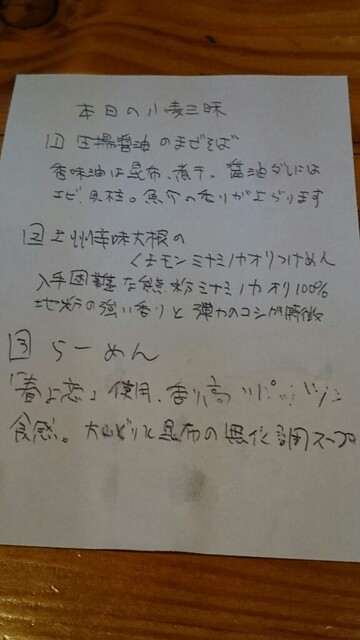 本日の小麦三昧
1 生揚醤油のまぜそば
香味油は昆布、煮干。醤油ダレには
エビ、貝柱。魚介の香りが上がります
2 上州辛味大根の
くまモンミナミノカオリつけめん
入手困難な熊粉ミナミノカオリ100%
地粉の強い香りと弾力のコシが特徴
3 らーめん
「春よ恋」使用、香り高いパッツン
食感。大山どりと昆布の無化調スープ